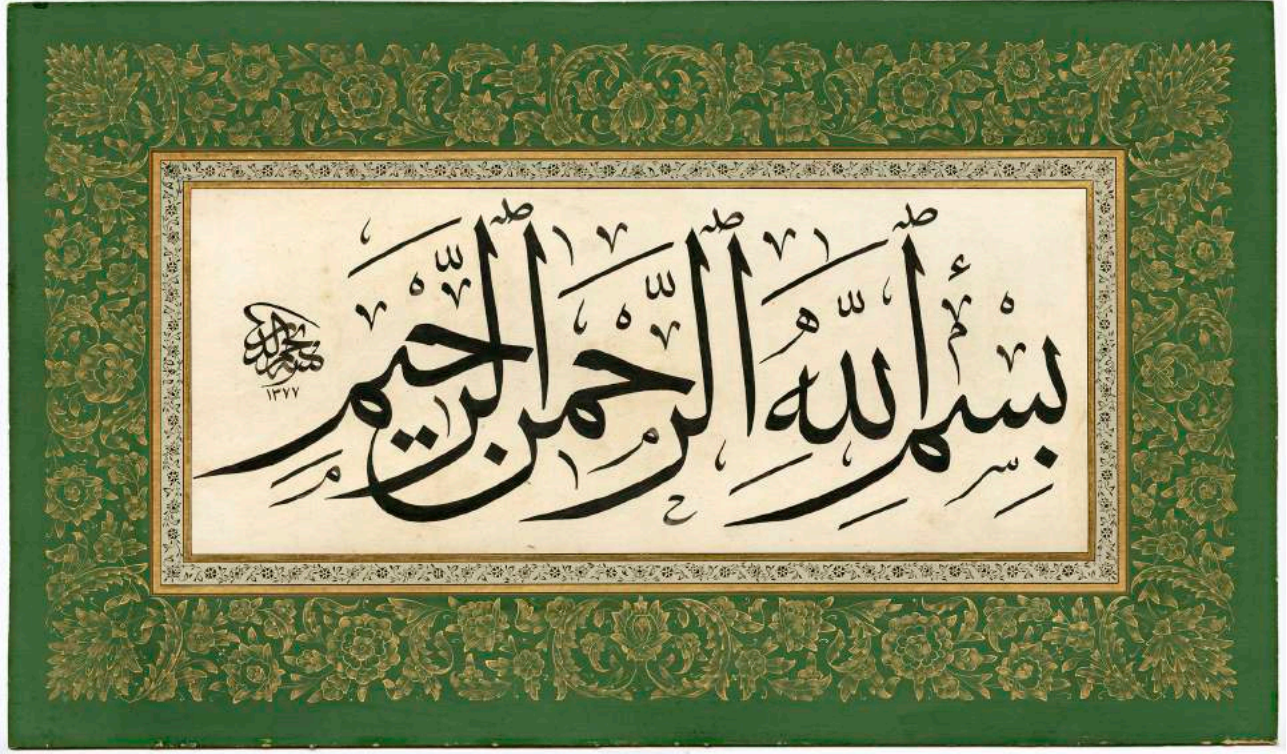 بِسْمِ ٱللَّهِ ٱلرَّحْمٰنِ ٱلرَّحِيمِ
١٣٧٧